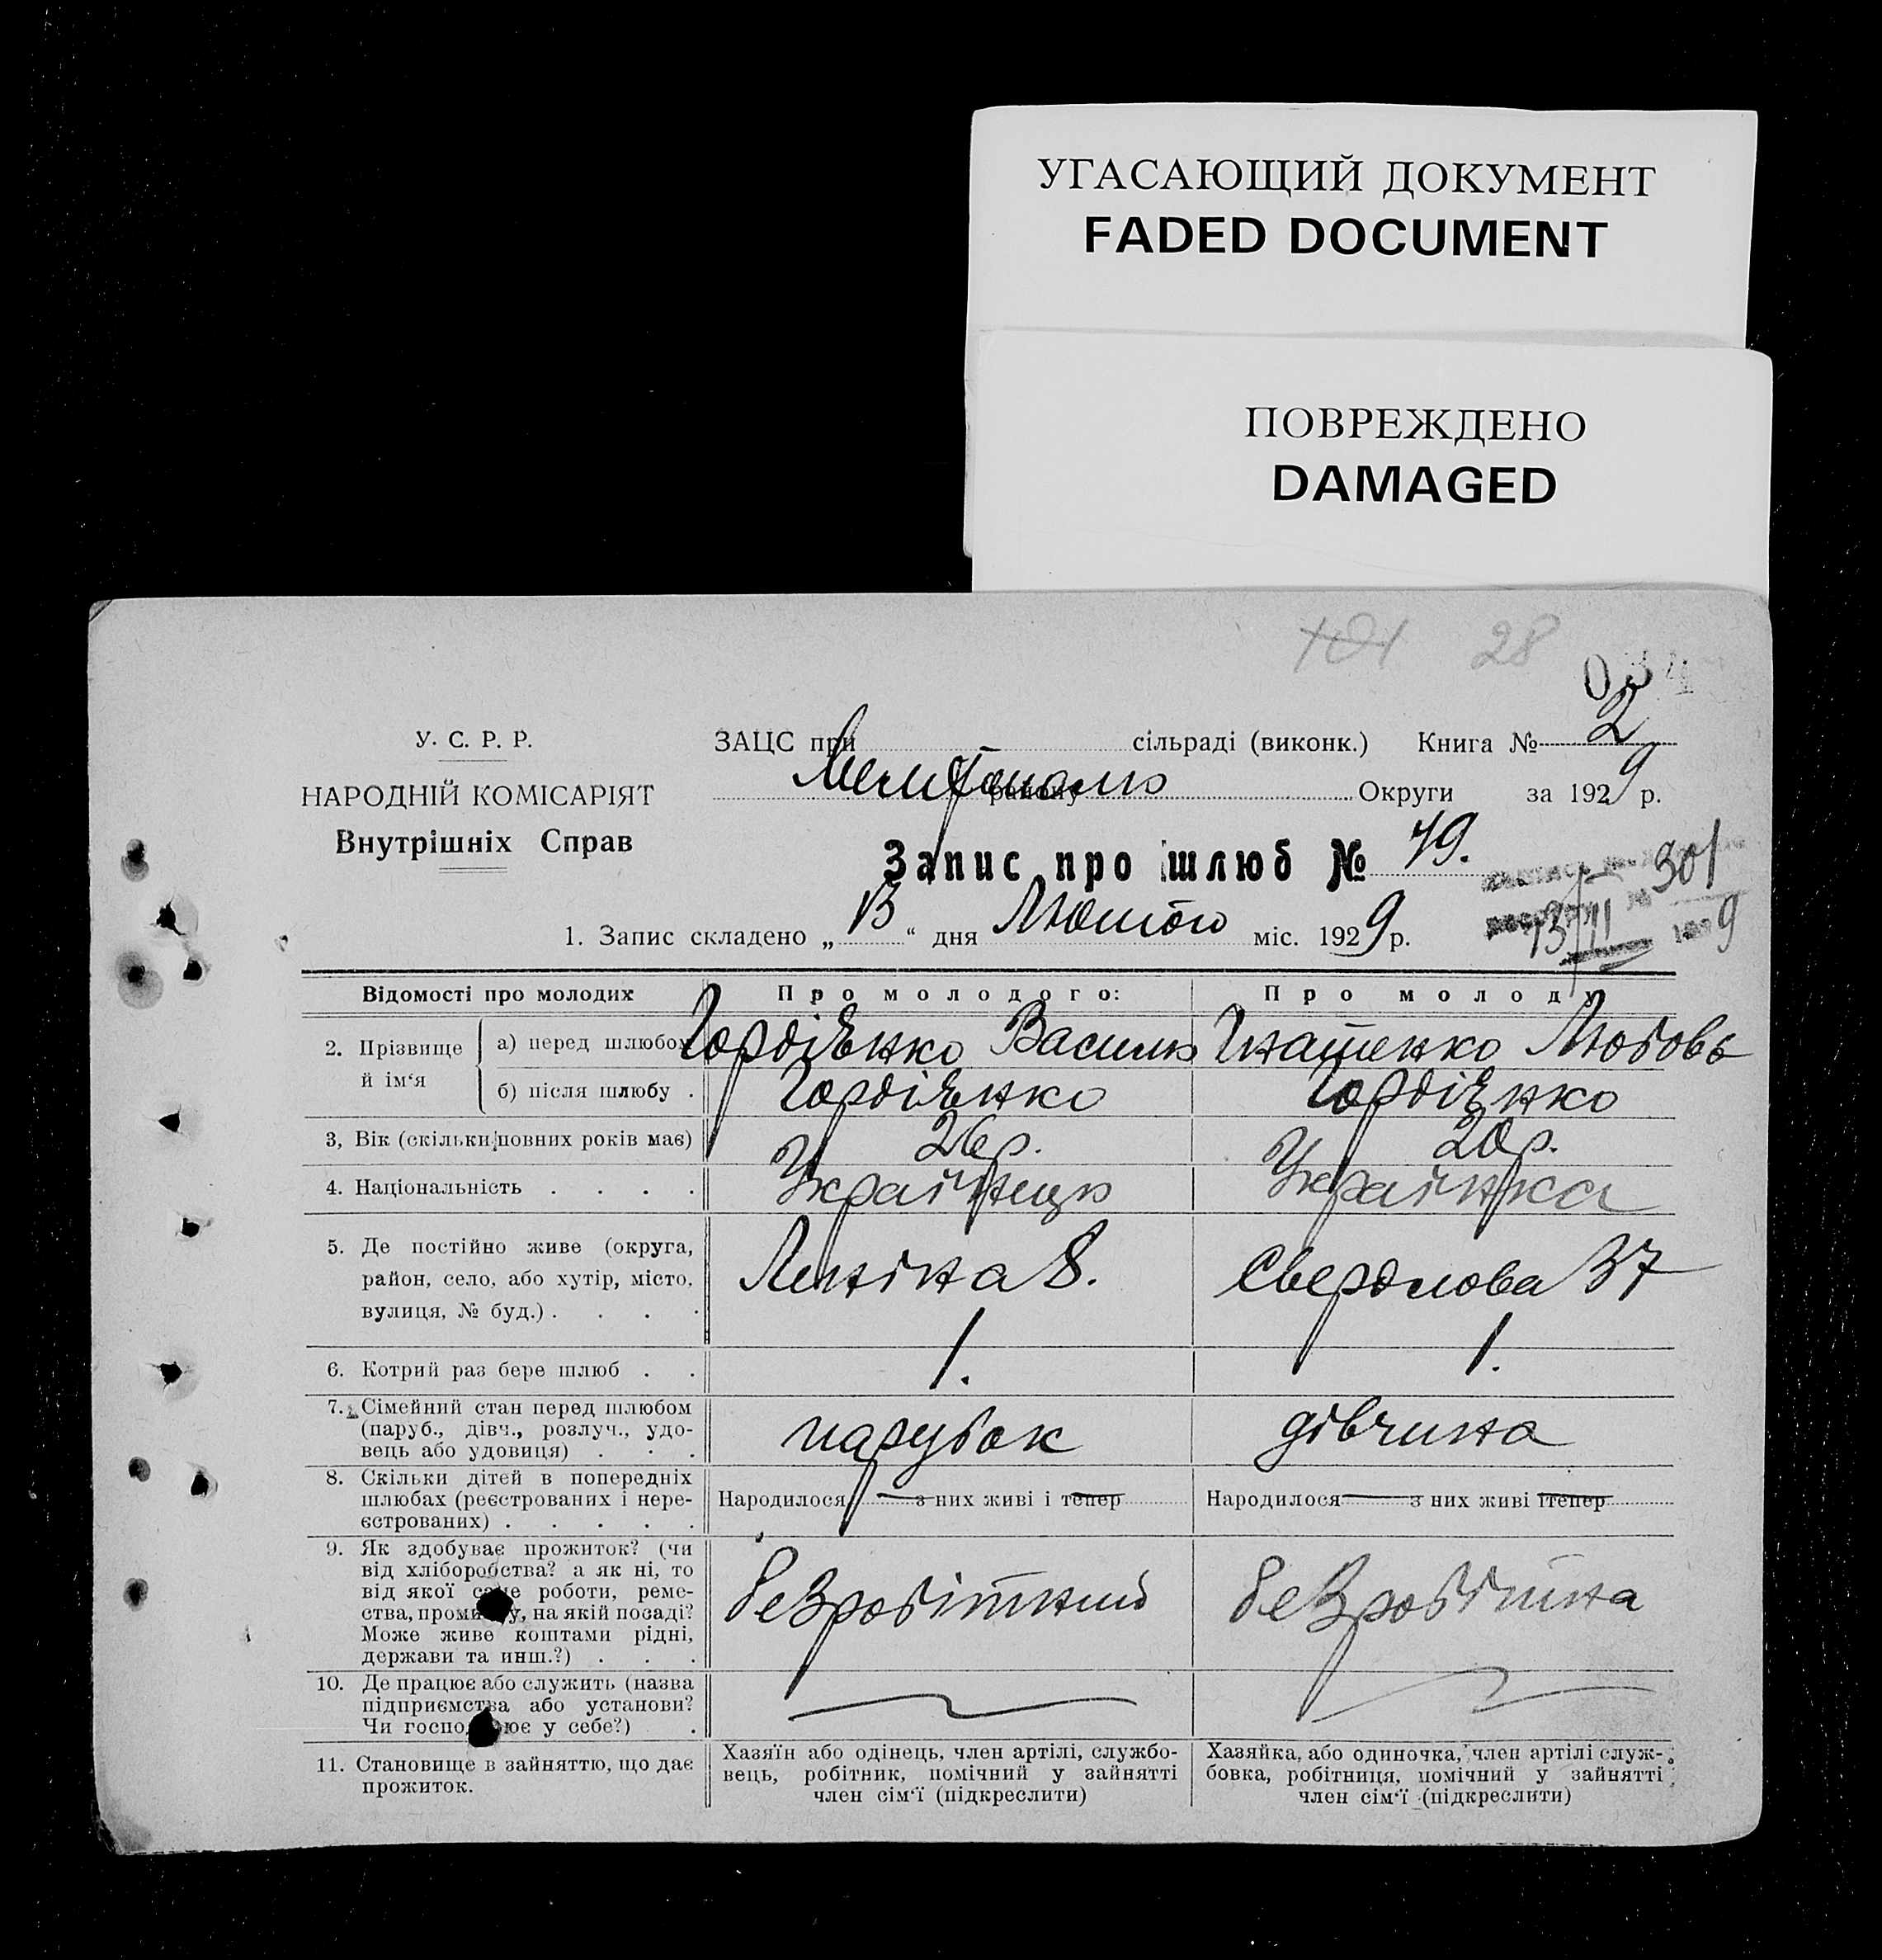 УГАСАЮЩИЙ ДОКУМЕНТ
FADED DOCUMENT
ПОВРЕЖДЕНО
DAMAGED
101 28
034
У. С. Р. Р.
НАРОДНІЙ КОМІСАРІЯТ
Внутрішніх Справ
ЗАЦС при сільраді (виконк.) Книга № 2
Мелітополь району Округи за 1929 р.
Запис про шлюб № 79.
301
13/II 1929
1. Запис складено „13“ дня Лютого міс. 1929 р.
Відомості про молодих
Про молодого:
Про молоду
2. Прізвище й ім‘я
а) перед шлюбом Гордієнко Василь Гнатенко Любовь
б) після шлюбу . Гордієнко Гордієнко
3, Вік (скільки повних років має) 26 р. 20 р.
4. Національність . . . . Українець Українка
5. Де постійно живе (округа,
район, село, або хутір, місто,
вулиця, № буд.) . . . .
Леніна 8. Свердлова 37
6. Котрий раз бере шлюб . . 1. 1.
7. Сімейний стан перед шлюбом
(паруб., дівч., розлуч., удо-
вець або удовиця) . . .
парубок дівчина
8. Скільки дітей в попередніх
шлюбах (реєстрованих і нере-
єстрованих) . . . . .
Народилося — з них живі і тепер
Народилося — з них живі і тепер
9. Як здобуває прожиток? (чи
від хліборобства? а як ні, то
від якої саме роботи, реме-
ства, промислу, на якій посаді?
Може живе коштами рідні,
держави та инш.?) . . .
безробітний безробітна
10. Де працює або служить (назва
підприємства або установи?
Чи господарює у себе?) .
11. Становище в зайняттю, що дає
прожиток.
Хазяїн або одінець, член артілі, службо-
вець, робітник, помічний у зайнятті
член сім‘ї (підкреслити)
Хазяйка, або одиночка, член артілі служ-
бовка, робітниця, помічний у зайнятті
член сім‘ї (підкреслити)